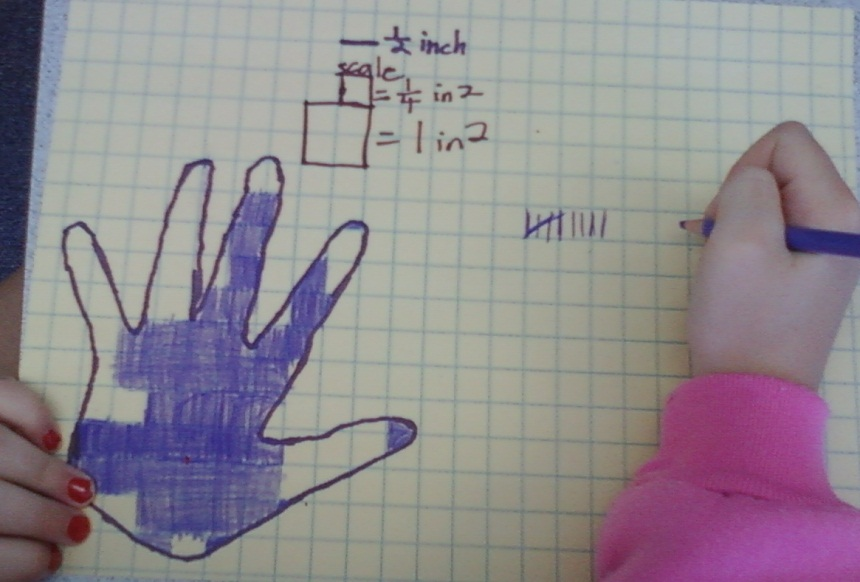 — 1/2 inch
scale
= 1/4 in 2
= 1 in 2